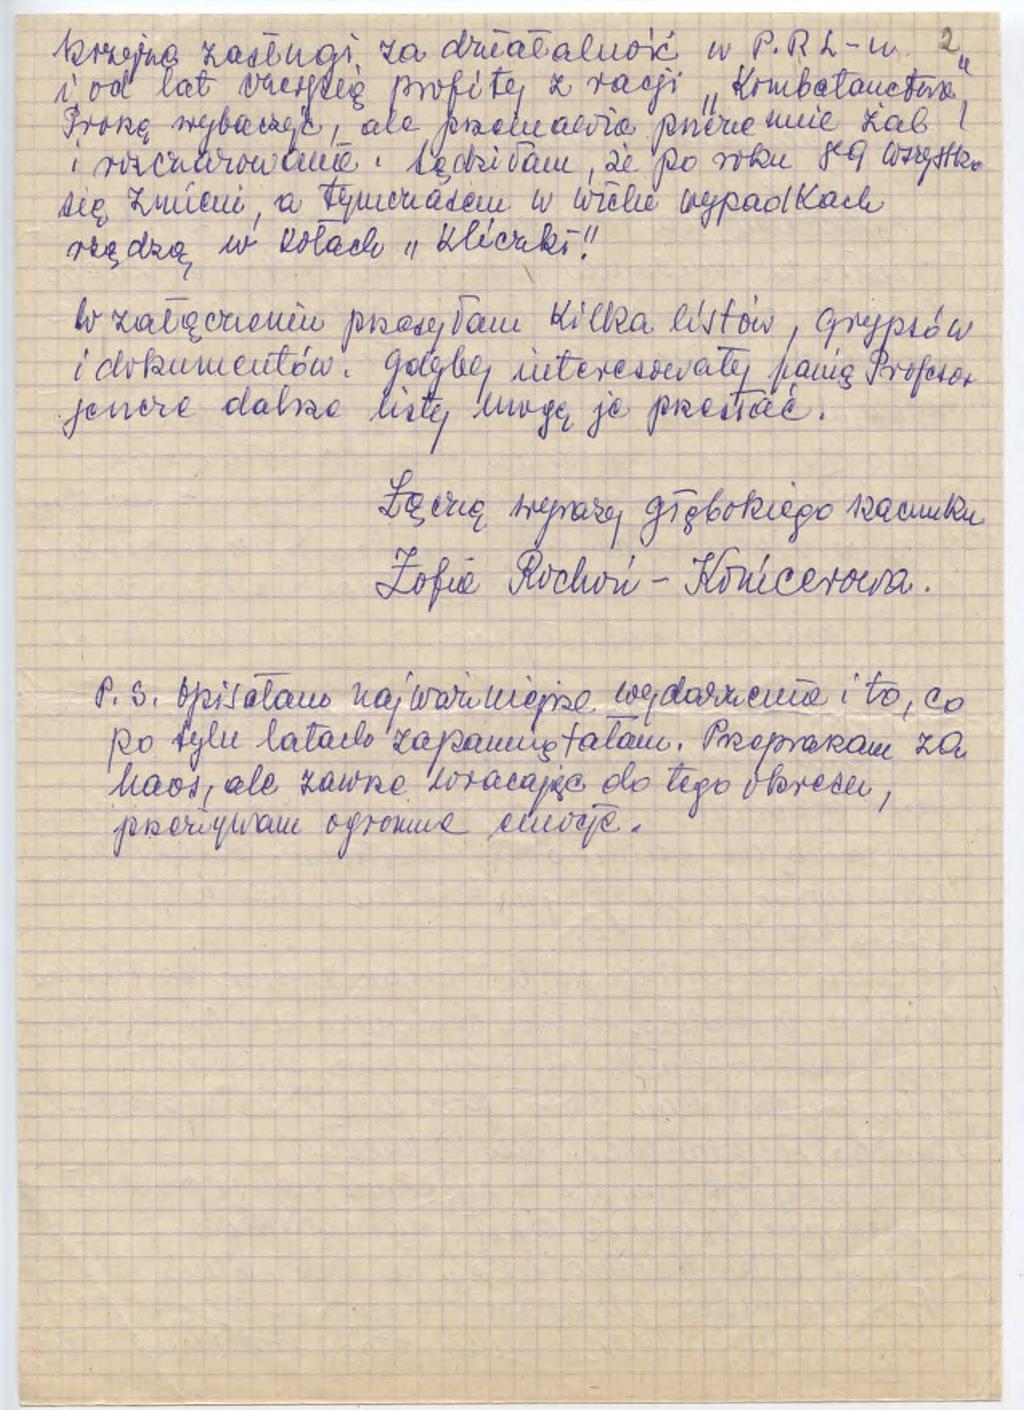 zasługi za działalność w P.R.L-u 2
i od lat czerpią profity z racji „Kombatanctwa”
Proszę wybaczyć, ale przemawia przeze mnie żal
i rozczarowanie. Sądziłam, że po roku 89 wszystko
się zmieni, a tymczasem w wielu wypadkach
rządzą w kołach „Kliczki”!
W załączeniu przesyłam kilka listów, grypsów
i dokumentów. Gdyby interesowały panią Profesor
jeszcze dalsze listy mogę je przesłać.
Łączę wyrazy głębokiego szacunku
Zofia Rochoń - Konicerowa.
P.S. Opisałam najważniejsze wydarzenia i to, co
po tylu latach zapamiętałam. Przepraszam za
haos, ale zawsze wracając do tego okresu,
przeżywam ogromne emocje.